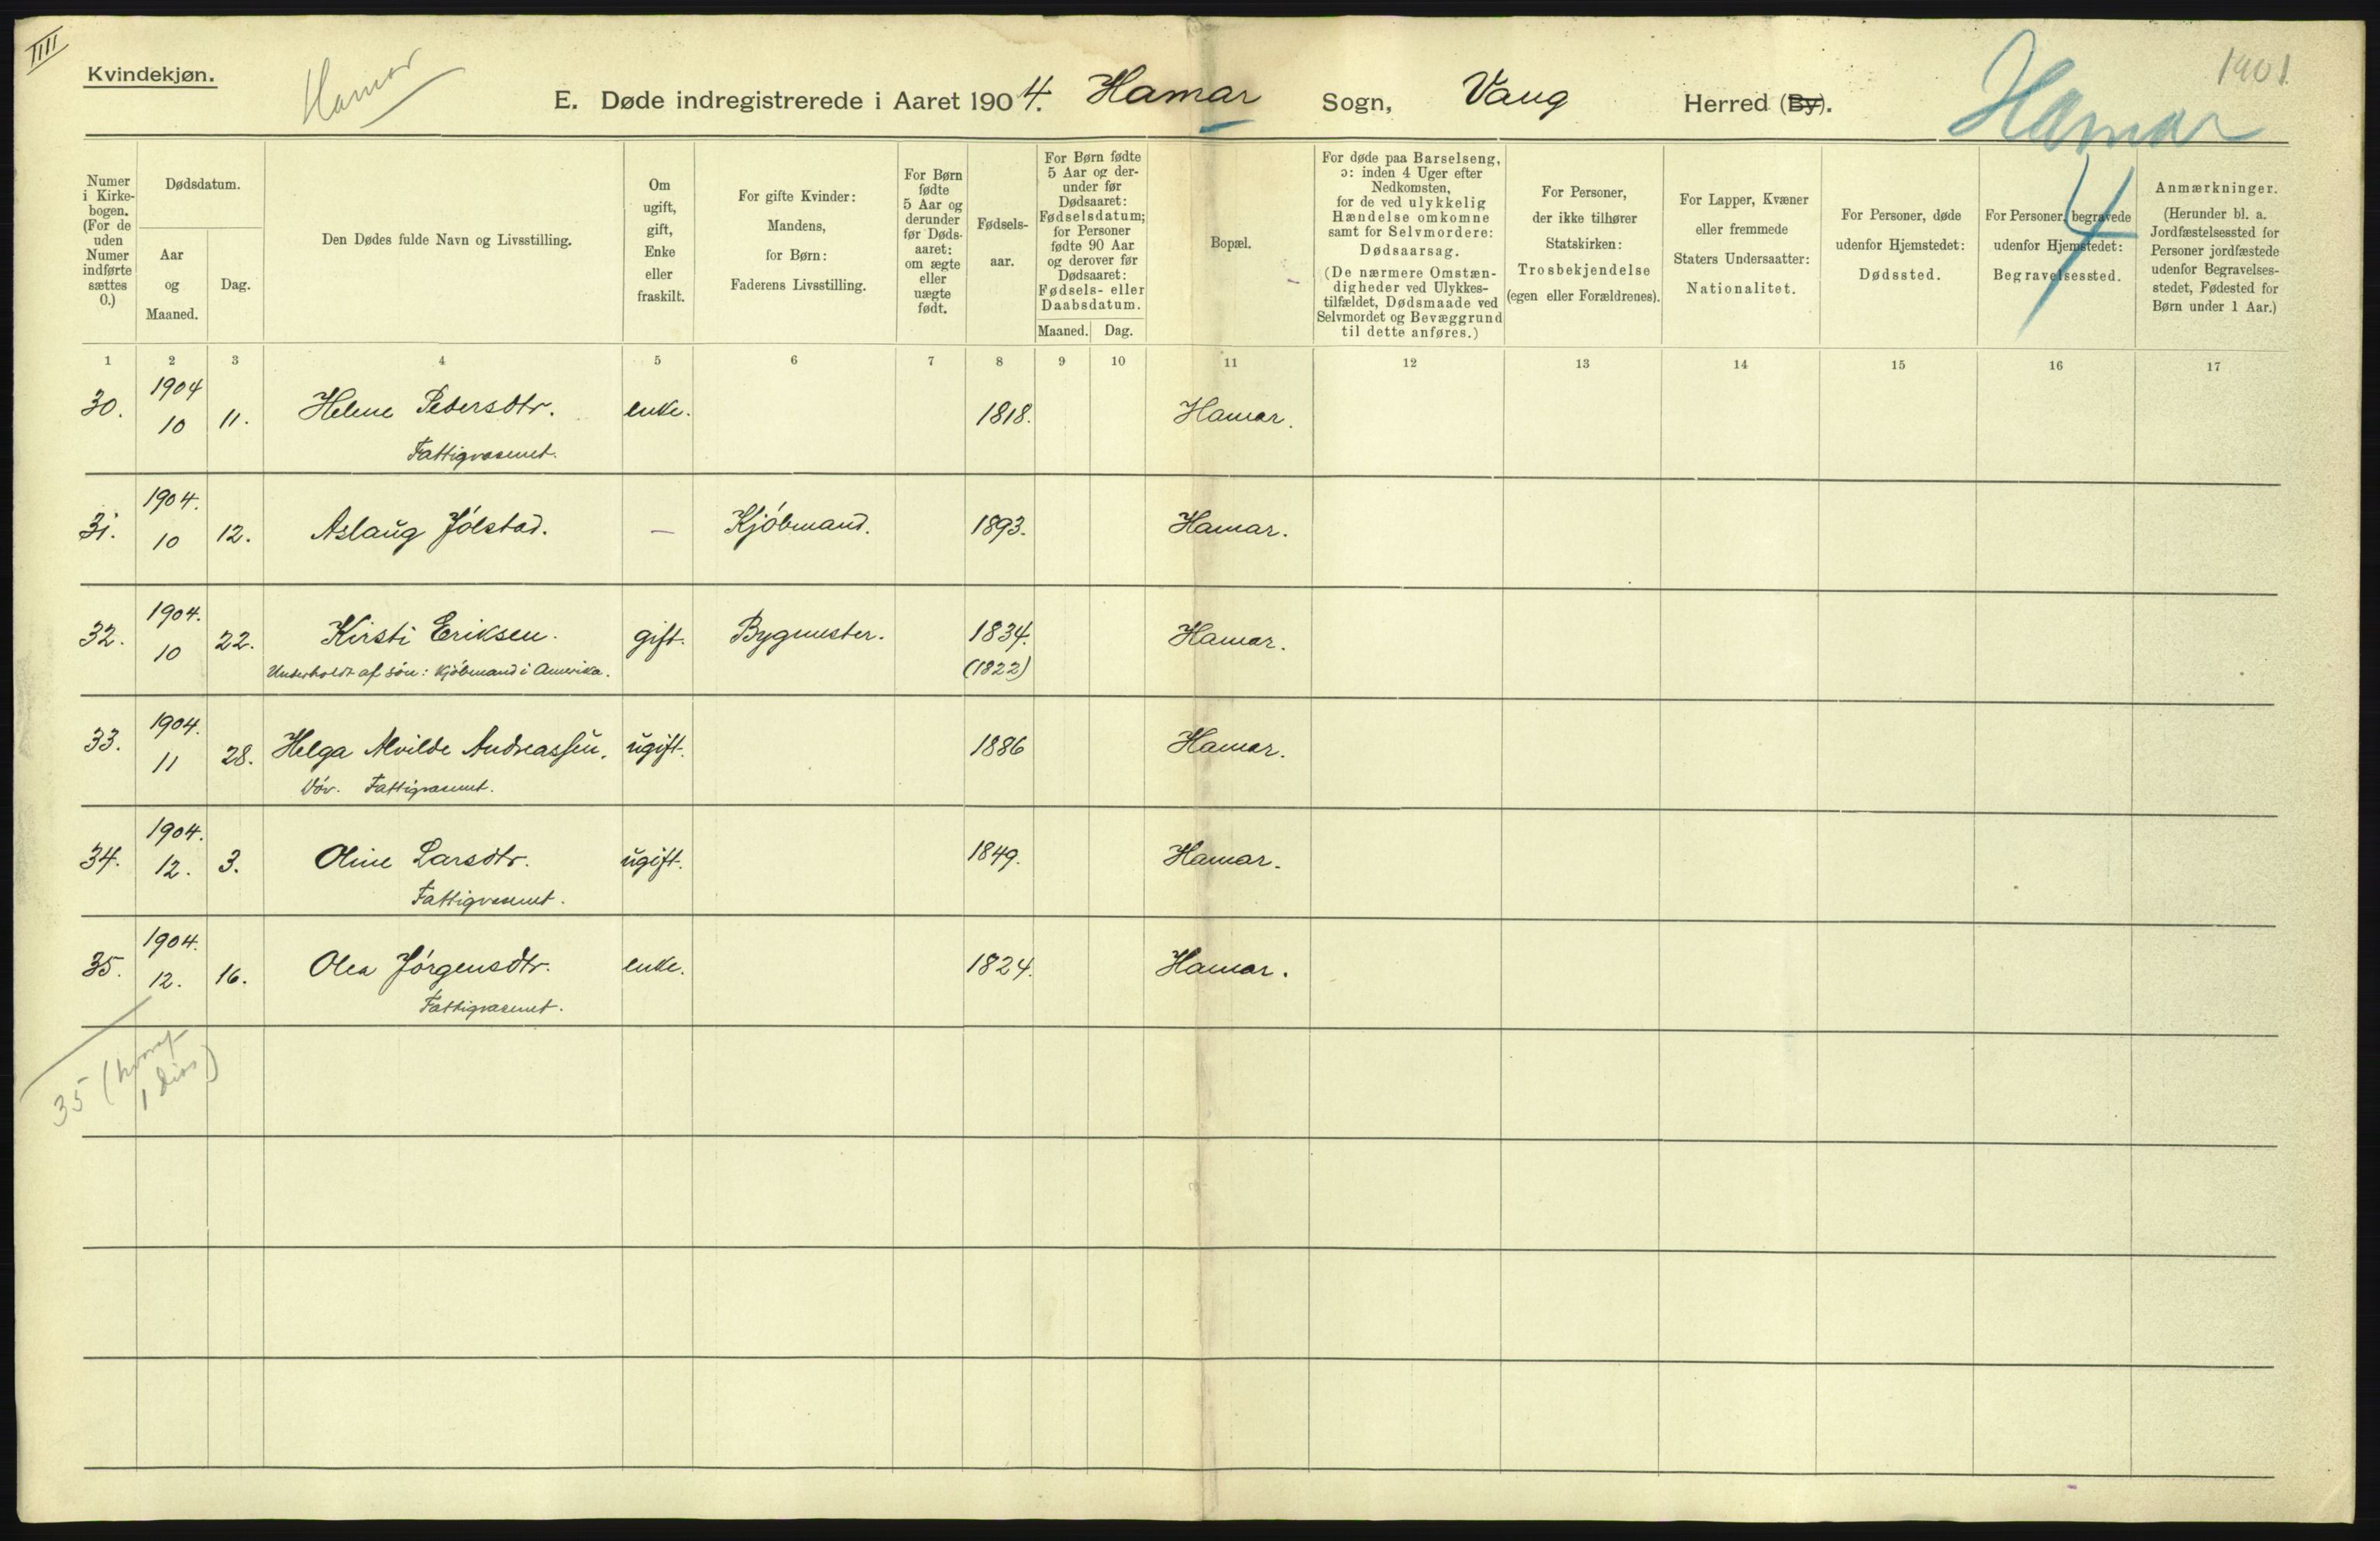 IIII
Kvindekjøn.
Hamar
E. Døde indregistrerede i Aaret 1904. Hamar Sogn, Vang Herred (By).
Hamar
4
1901
Numer
i Kirke-
bogen.
(For de
uden
Numer
indførte
sættes
0.)
Dødsdatum.
Aar
og
Maaned.
Dag.
Den Dødes fulde Navn og Livsstilling.
Om
ugift,
gift,
Enke
eller
fraskilt.
For gifte Kvinder:
Mandens,
for Børn:
Faderens Livsstilling.
For Børn
fødte
5 Aar og
derunder
før Døds-
aaret:
om ægte
eller
uægte
født.
Fødsels-
aar.
For Børn fødte
5 Aar og der-
under før
Dødsaaret:
Fødselsdatum;
for Personer
fødte 90 Aar
og derover før
Dødsaaret:
Fødsels- eller
Daabsdatum.
Maaned. Dag.
Bopæl.
For døde paa Barselseng,
ɔ: inden 4 Uger efter
Nedkomsten,
for de ved ulykkelig
Hændelse omkomne
samt for Selvmordere:
Dødsaarsag.
(De nærmere Omstæn-
digheder ved Ulykkes-
tilfældet, Dødsmaade ved
Selvmordet og Bevæggrund
til dette anføres.)
For Personer,
der ikke tilhører
Statskirken:
Trosbekjendelse
(egen eller Forældrenes).
For Lapper, Kvæner
eller fremmede
Staters Undersaatter:
Nationalitet.
For Personer, døde
udenfor Hjemstedet:
Dødssted.
For Personer, begravede
udenfor Hjemstedet:
Begravelsessted.
Anmærkninger.
(Herunder bl. a.
Jordfæstelsessted for
Personer jordfæstede
udenfor Begravelses-
stedet, Fødested for
Børn under 1 Aar.)
1 2 3 4 5 6 7 8 9 10 11 12 13 14 15 16 17
1904
30. 10 11. Helene Pedersdtr. enke. 1818. Hamar.
Fattigvæsenet.
1904.
31. 10 12. Aslaug Jølstad. — Kjøbmand. 1893. Hamar.
1904.
32. 10 22. Kirsti Eriksen. gift. Bygmester. 1834. Hamar.
Underholdt af søn: Kjøbmand i Amerika. (1822)
1904.
33. 11 28. Helga Alvilde Andreassen. ugift. 1886 Hamar.
Døv. Fattigvæsenet.
1904.
34. 12. 3. Oline Larsdtr. ugift. 1849. Hamar.
Fattigvæsenet.
1904.
35. 12. 16. Olea Jørgensdtr. enke. 1824. Hamar.
Fattigvæsenet.
35 (hvoraf
1